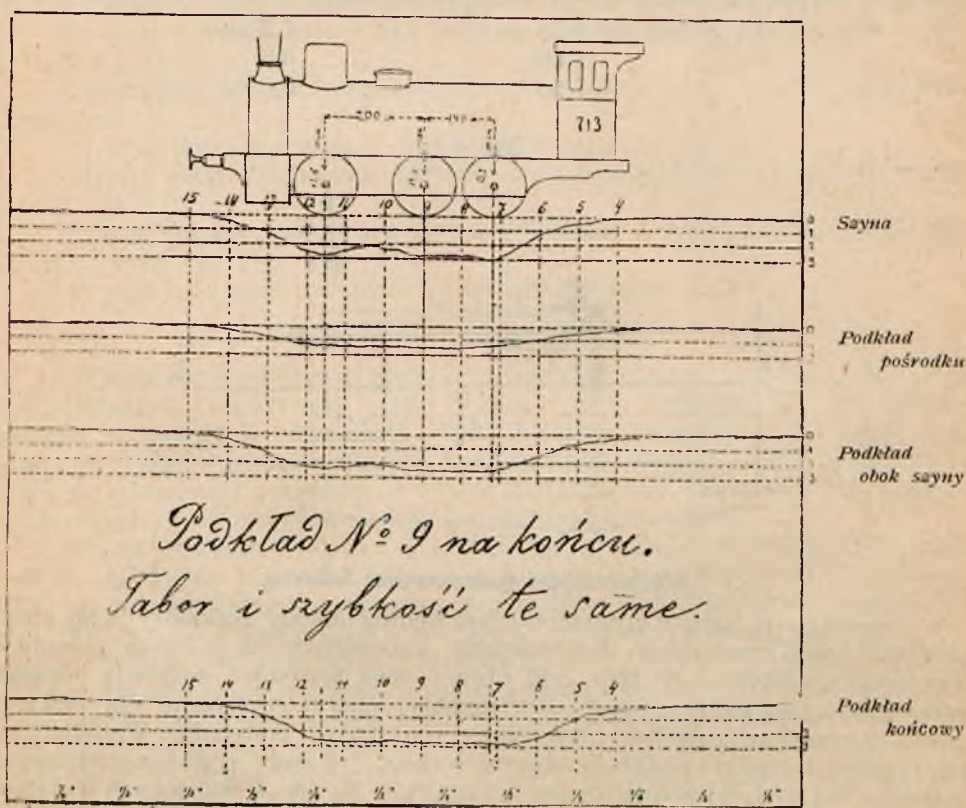 200 140
713
15 14 13 12 11 10 9 8 7 6 5 4
Szyna
Podkład
pośrodku
Podkład
obok szyny
Podkład № 9 na końcu.
Tabor i szybkość te same.
15 14 13 12 11 10 9 8 7 6 5 4
Podkład
końcowy